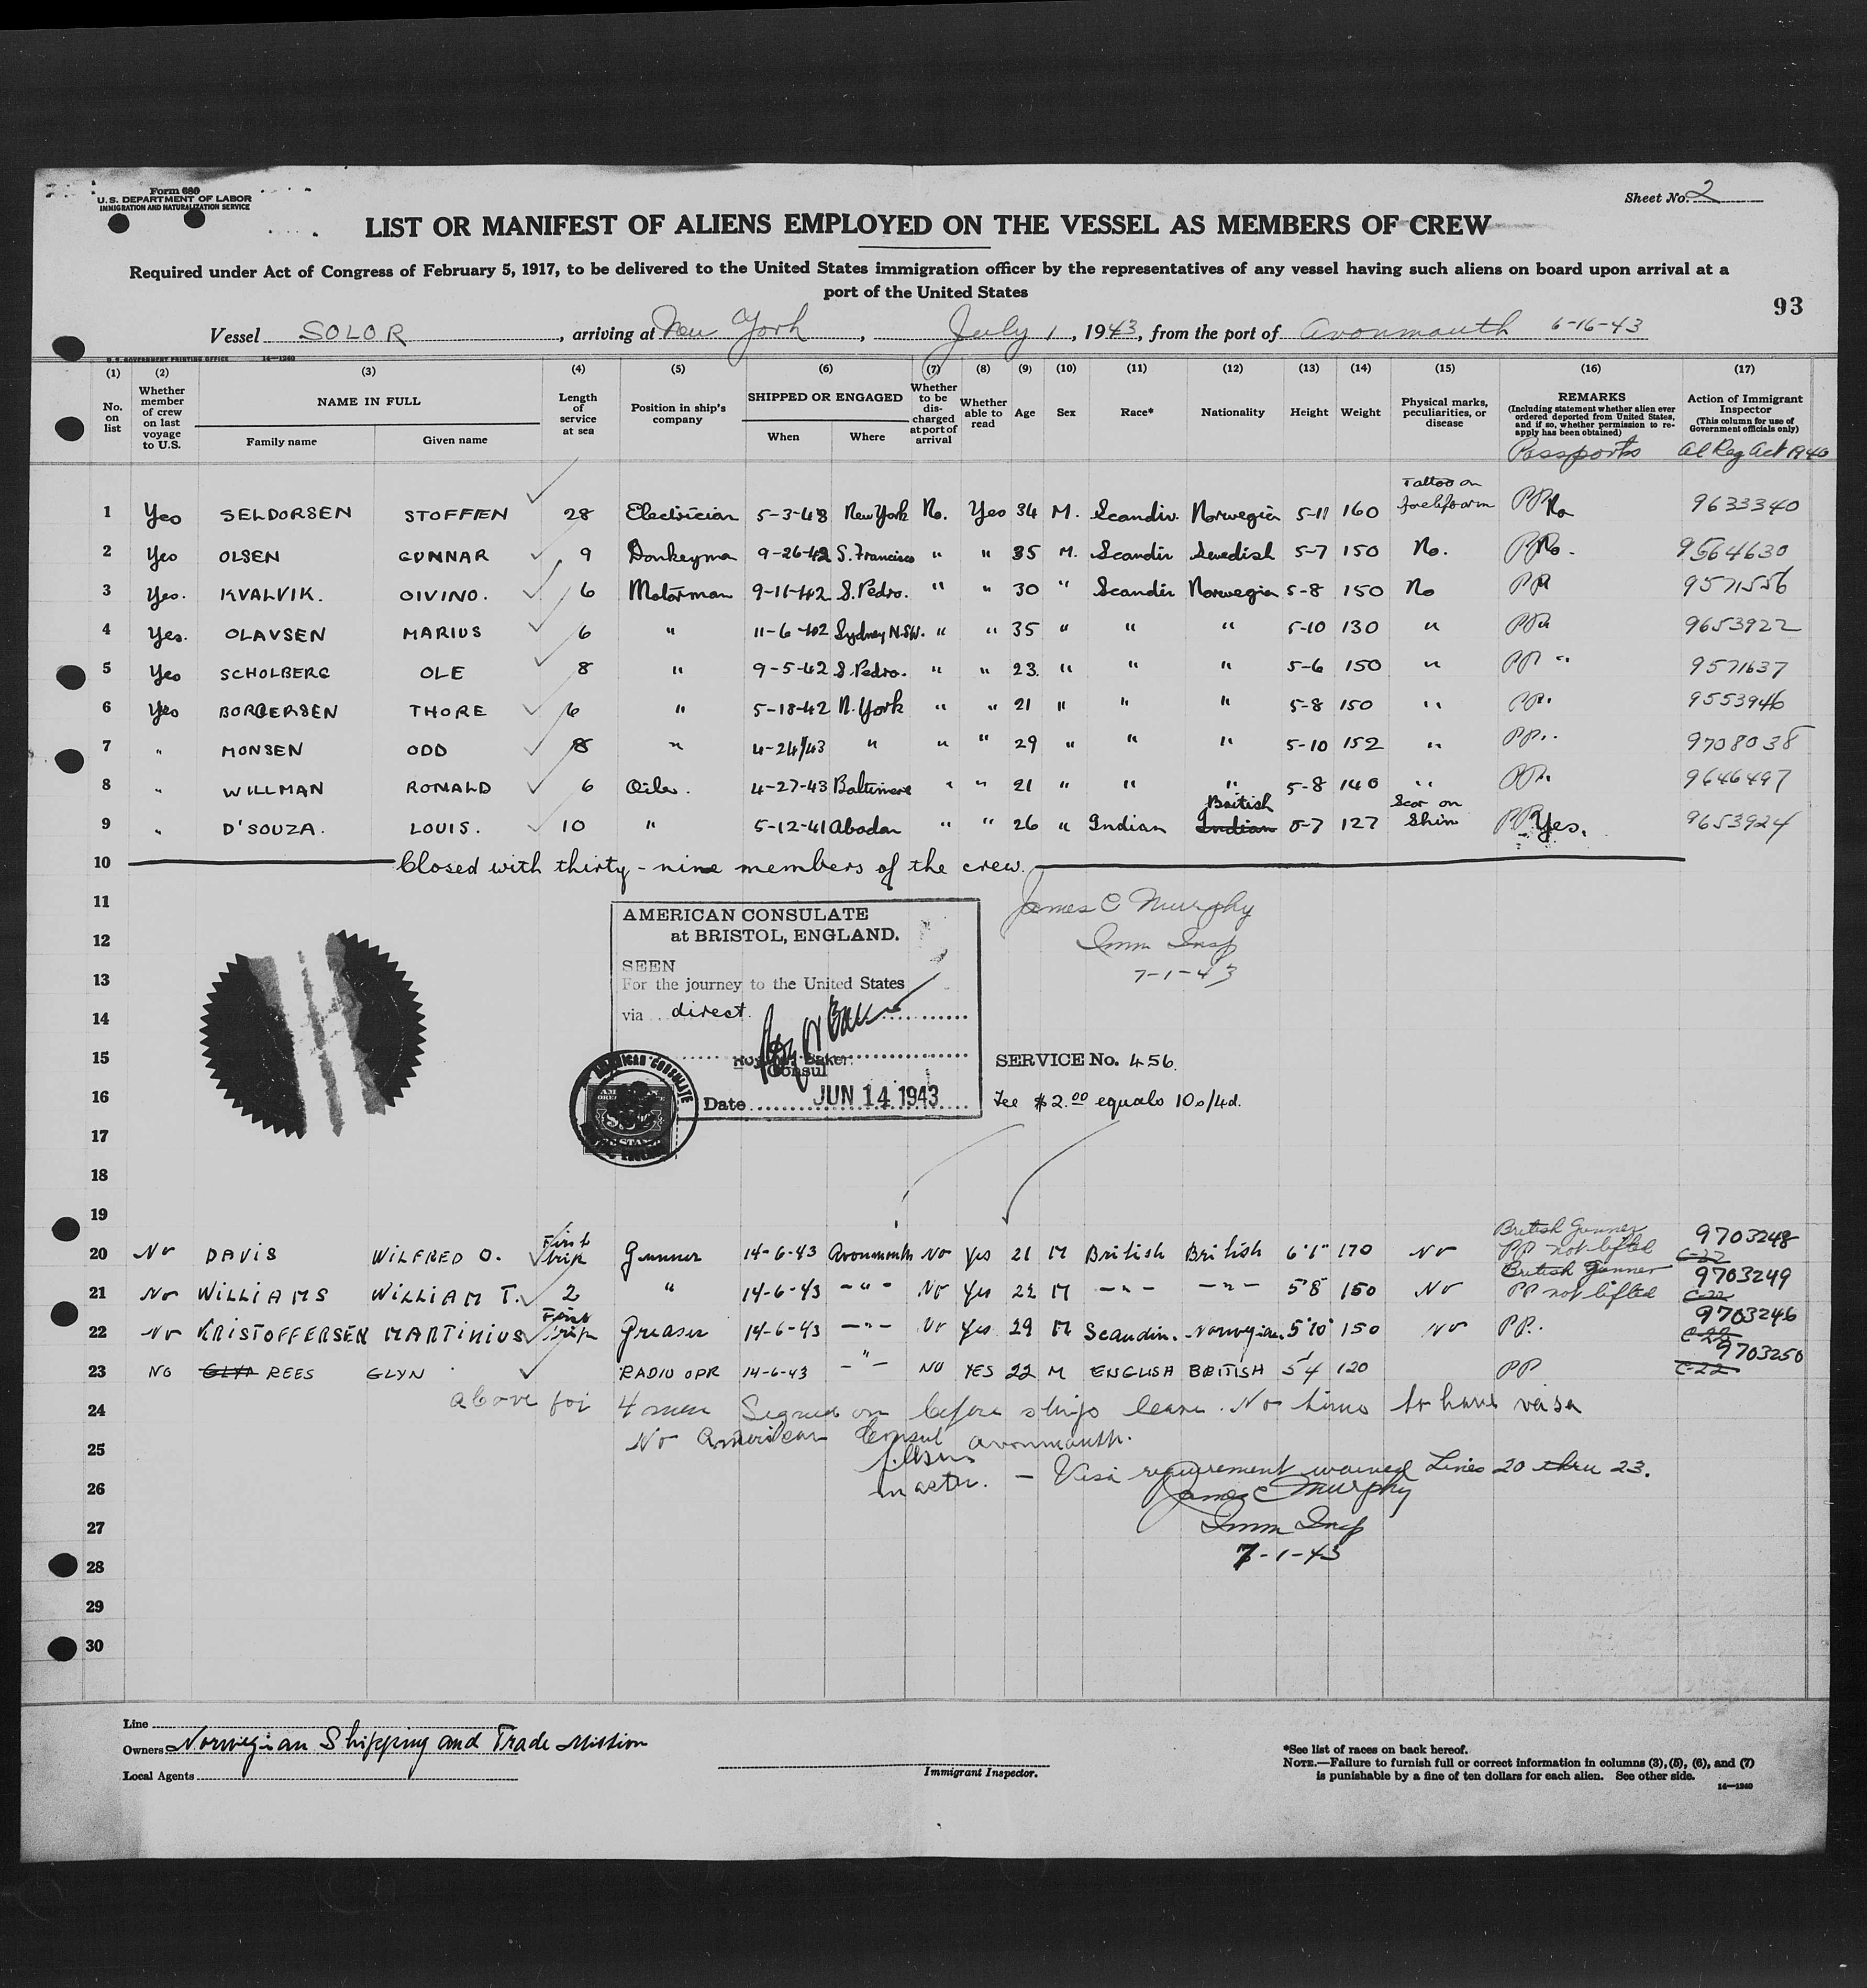 Form 680
U.S. DEPARTMENT OF LABOR
IMMIGRATION AND NATURALIZATION SERVICE
Sheet No. 2
LIST OR MANIFEST OF ALIENS EMPLOYED ON THE VESSEL AS MEMBERS OF CREW
Required under Act of Congress of February 5, 1917, to be delivered to the United States immigration officer by the representatives of any vessel having such aliens on board upon arrival at a
port of the United States
93
Vessel SOLOR, arriving at New York, July 1, 1943, from the port of Avonmouth 6-16-43
U.S. GOVERNMENT PRINTING OFFICE 14—1240
(1) (2) (3) (4) (5) (6) (7) (8) (9) (10) (11) (12) (13) (14) (15) (16) (17)
No. on list
Whether member of crew on last voyage to U.S.
NAME IN FULL
Family name
Given name
Length of service at sea
Position in ship's company
SHIPPED OR ENGAGED
When
Where
Whether to be discharged at port of arrival
Whether able to read
Age
Sex
Race*
Nationality
Height
Weight
Physical marks, peculiarities, or disease
REMARKS
(Including statement whether alien ever ordered deported from United States, and if so, whether permission to reapply has been obtained)
Passports
Action of Immigrant Inspector
(This column for use of Government officials only)
Al Reg Act 1940
1 Yes SELDORSEN STOFFEN 28 Electrician 5-3-43 New York No. Yes 34 M. Scandiv. Norwegin 5-11 160 Tattoo on PP No 9633340
2 Yes OLSEN GUNNAR 9 Donkeyman 9-26-42 S. Francisco " " 35 M. Scandiv Swedish 5-7 150 No. PP No. 9564630
3 Yes. KVALVIK. OIVIND. 6 Motorman 9-11-42 S. Pedro. " " 30 " Scandiv Norwegin 5-8 150 No PP " 9571556
4 Yes. OLAVSEN MARIUS 6 " 11-6-42 Sydney N.SW. " " 35 " " " 5-10 130 " PP " 9653922
5 Yes SCHOLBERG OLE 8 " 9-5-42 S. Pedro. " " 23. " " " 5-6 150 " PP " 9571637
6 Yes BORGERSEN THORE 6 " 5-18-42 N. York " " 21 " " " 5-8 150 " PP " 9553946
7 " MONSEN ODD 8 " 4-24/43 " " " 29 " " " 5-10 152 " PP " 9708038
8 " WILLMAN RONALD 6 Oiler. 4-27-43 Baltimore " " 21 " " " 5-8 140 " PP " 9646497
9 " D'SOUZA. LOUIS. 10 " 5-12-41 Abadan " " 26 " Indian Indian British 5-7 127 Scar on Shin PP Yes. 9653924
10 Closed with thirty-nine members of the crew.
11
12
13
14
15
16
17
18
19
James C Murphy
Imm Insp
7-1-43
AMERICAN CONSULATE
at BRISTOL, ENGLAND.
SEEN
For the journey to the United States
via direct.
Baker
Consul
Date JUN 14 1943
AMERICAN CONSULATE
SERVICE No. 456.
Fee $2.00 equals 10s/4d.
20 No DAVIS WILFRED O. First trip Gunner 14-6-43 Avonmouth No Yes 21 M British British 6'1" 170 No British Gunner PP not lifted 9703248 C-22
21 No WILLIAMS WILLIAM T. 2 " 14-6-43 -"- No Yes 22 M -"- -"- 5'8 150 No British Gunner PP not lifted 9703249 C-22
22 No KRISTOFFERSEN MARTINIUS First trip Greaser 14-6-43 -"- No Yes 29 M Scandin. Norwegian. 5'10" 150 No PP. 9703246 C-22
23 NO GLYN REES GLYN RADIO OPR 14-6-43 -"- NO YES 22 M ENGLISH BRITISH 5'4 120 PP 9703250 C-22
24 above for 4 men Signed on before ships leave. No time to have visa
25 No American Consul Avonmouth.
26 master. — Visa requirement waived Lines 20 thru 23.
James C Murphy
27 Imm Insp
28 7-1-43
29
30
Line
Owners Norwegian Shipping and Trade Mission
Local Agents
Immigrant Inspector.
*See list of races on back hereof.
NOTE.—Failure to furnish full or correct information in columns (3), (5), (6), and (7)
is punishable by a fine of ten dollars for each alien. See other side.
14—1240